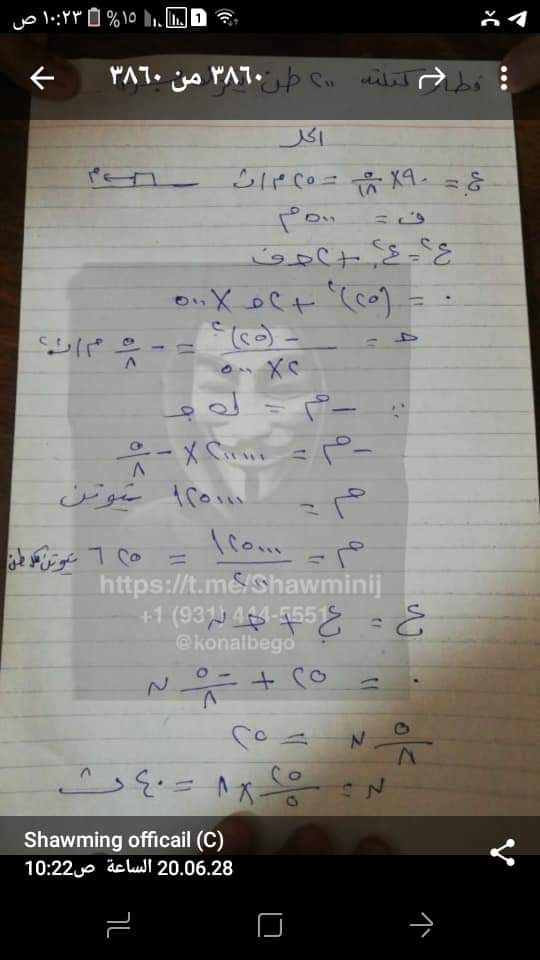 ١٠:٢٣ ص
١٥%
1
٣٨٦٠ من ٣٨٦٠
قطار كتلته ٢٠٠ طن
الحل
ع. = ٩٠ × ٥/١٨ = ٢٥ م/ث
ف = ٥٠٠ م
ع² = ع.² + ٢ حـ ف
٠ = (٢٥)² + ٢ حـ × ٥٠٠
حـ = -(٢٥)² / ٢ × ٥٠٠ = -٥/٨ م/ث²
∴ -م = ك جـ
-م = ٢٠٠٠٠٠ × -٥/٨
م = ١٢٥٠٠٠ نيوتن
م = ١٢٥٠٠٠/٢٠٠ = ٦٢٥ نيوتن لكل طن
https://t.me/Shawminij
+1 (931) 444-5551
@konalbego
ع = ع. + حـ ن
٠ = ٢٥ + -٥/٨ ن
٥/٨ ن = ٢٥
ن = ٢٥/٥ × ٨ = ٤٠ ث
Shawming officail (C)
20.06.28 الساعة 10:22ص